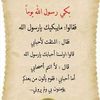 بكي رسول الله يوماً
فقالوا: مايبكيك يارسول الله
قال : اشتقت لأحبابي
قالوا : اولسنا أحبابك يارسول الله
قال : لا أنتم أصحابي
أما أحبابي : فقوم يأتون من بعدي
يؤمنون بي ولم يروني..